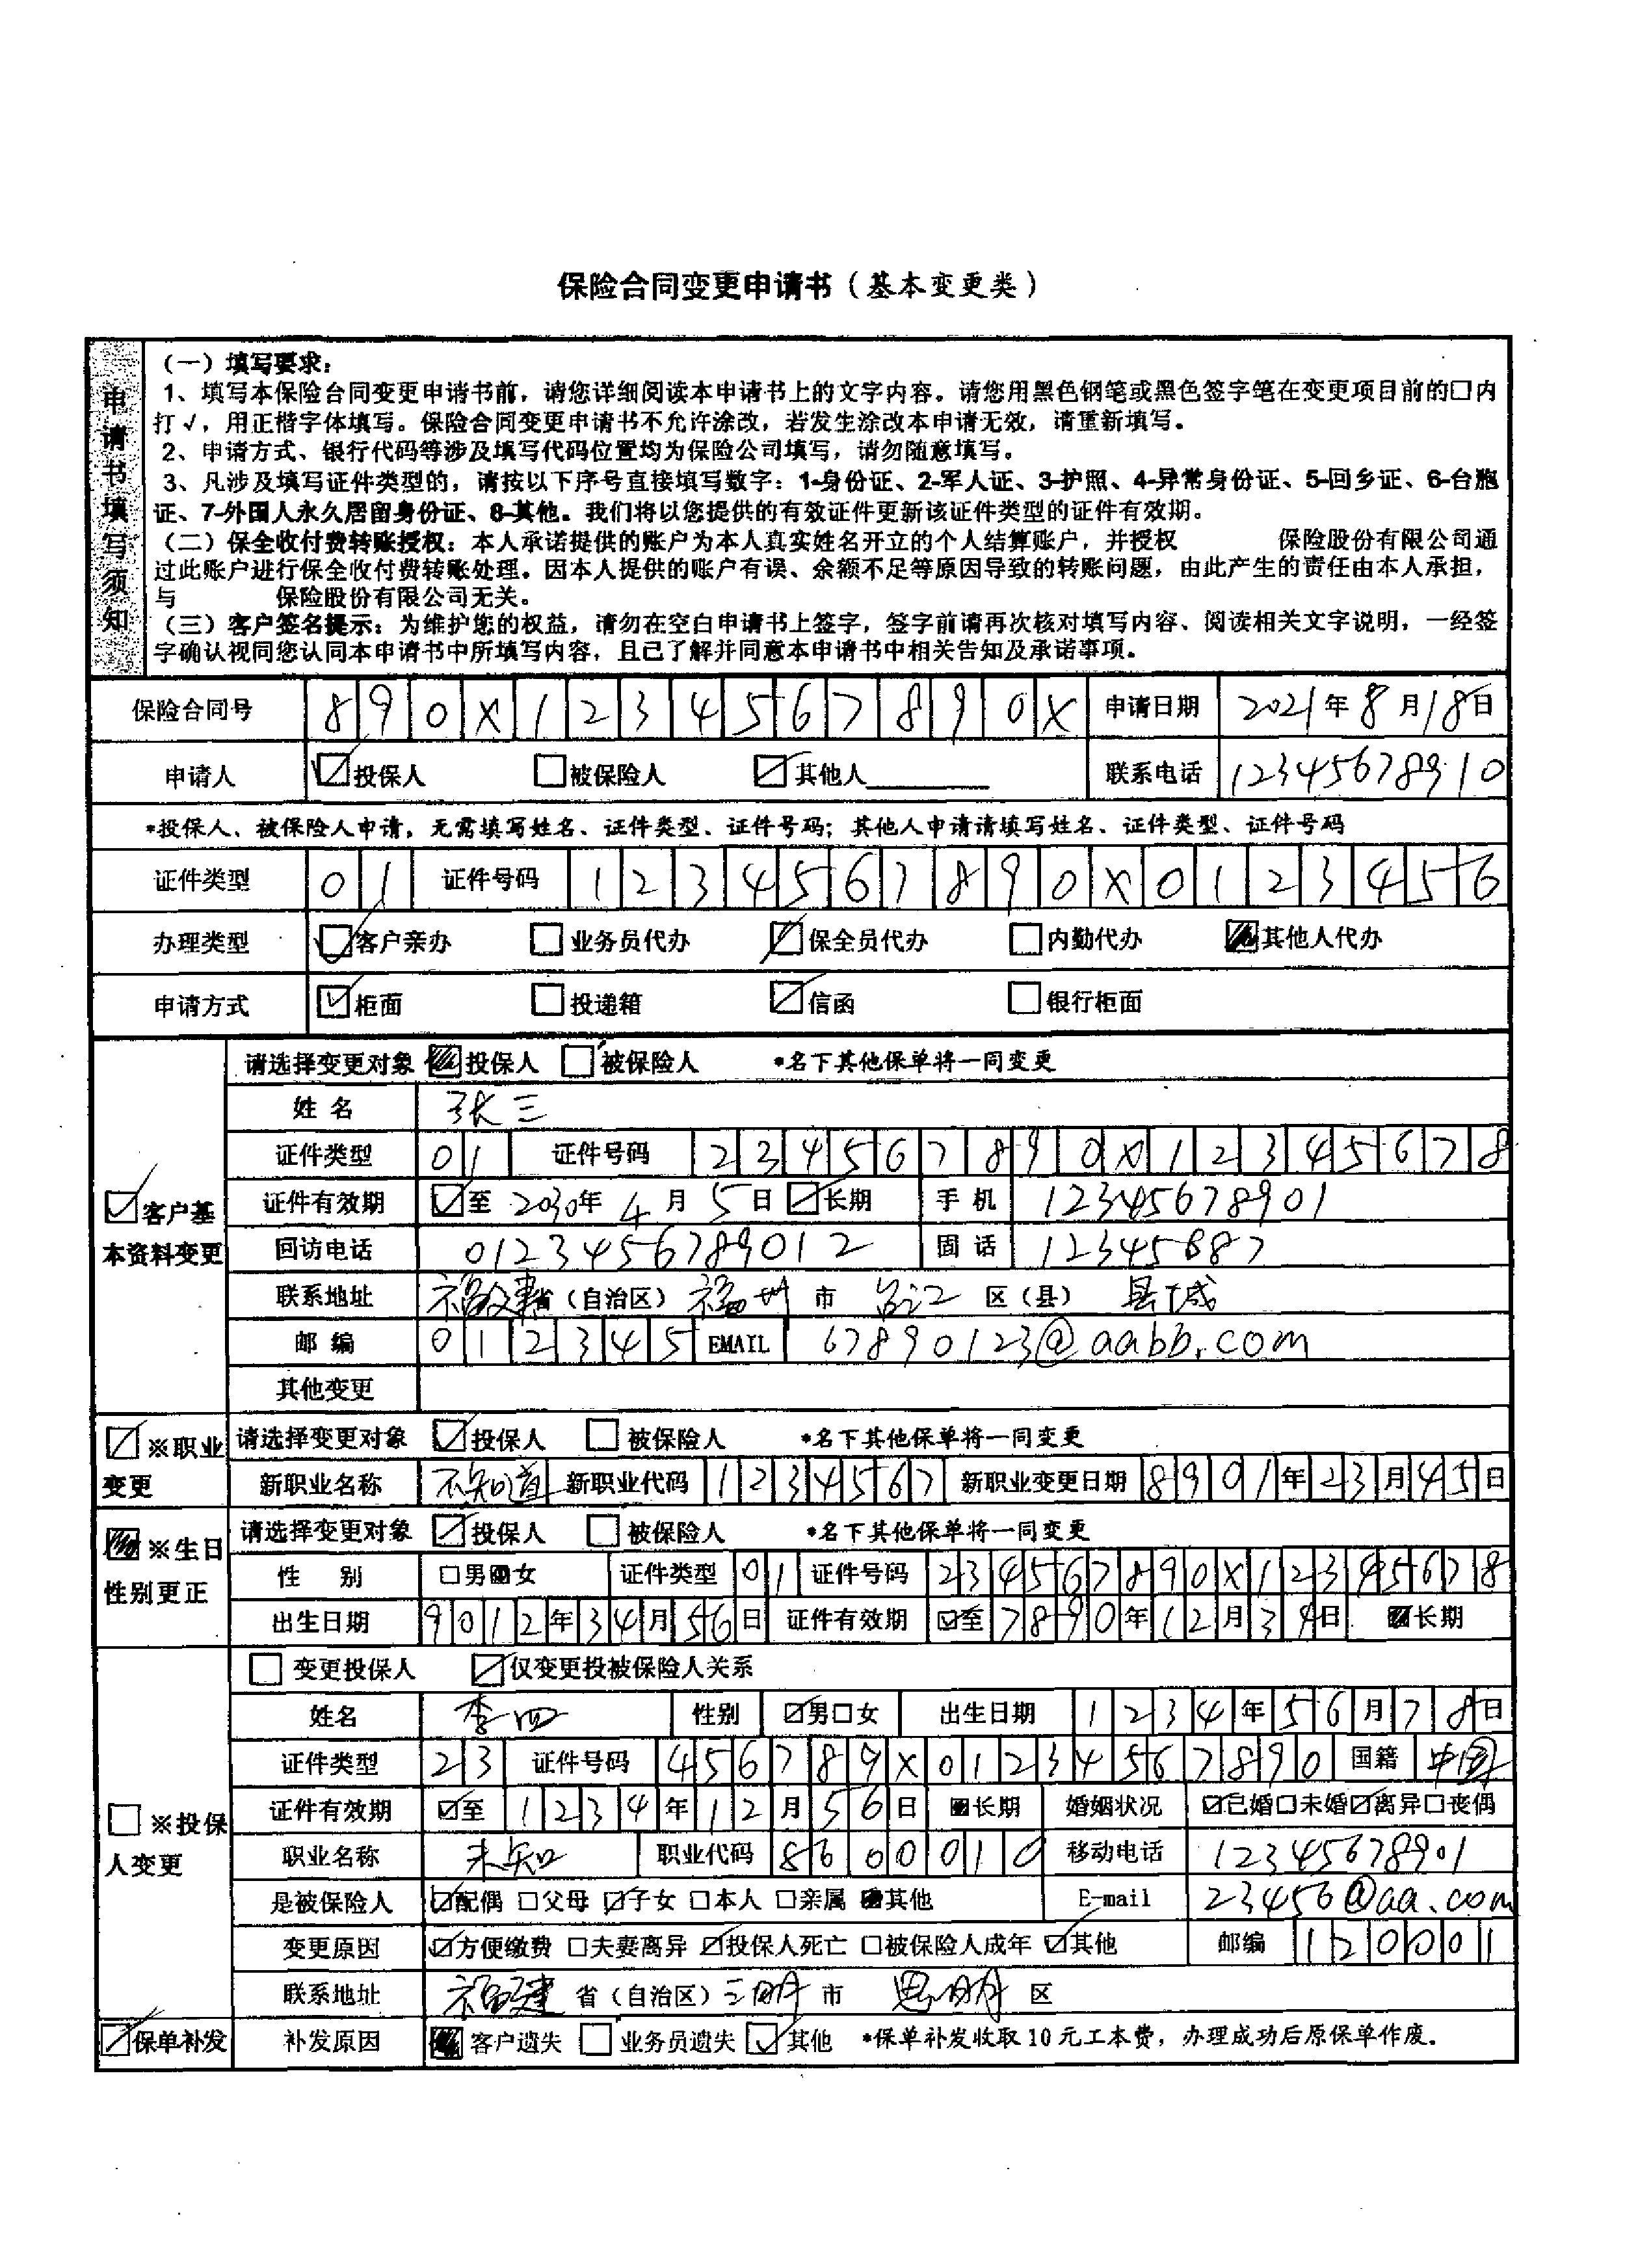 保险合同变更申请书（基本变更类）
申请书填写须知
（一）填写要求：
1、填写本保险合同变更申请书前，请您详细阅读本申请书上的文字内容。请您用黑色钢笔或黑色签字笔在变更项目前的□内
打√，用正楷字体填写。保险合同变更申请书不允许涂改，若发生涂改本申请无效，请重新填写。
2、申请方式、银行代码等涉及填写代码位置均为保险公司填写，请勿随意填写。
3、凡涉及填写证件类型的，请按以下序号直接填写数字：1-身份证、2-军人证、3-护照、4-异常身份证、5-回乡证、6-台胞
证、7-外国人永久居留身份证、8-其他。我们将以您提供的有效证件更新该证件类型的证件有效期。
（二）保全收付费转账授权：本人承诺提供的账户为本人真实姓名开立的个人结算账户，并授权 保险股份有限公司通
过此账户进行保全收付费转账处理。因本人提供的账户有误、余额不足等原因导致的转账问题，由此产生的责任由本人承担，
与 保险股份有限公司无关。
（三）客户签名提示：为维护您的权益，请勿在空白申请书上签字，签字前请再次核对填写内容、阅读相关文字说明，一经签
字确认视同您认同本申请书中所填写内容，且已了解并同意本申请书中相关告知及承诺事项。
保险合同号 890X1234567890X 申请日期 2021年8月18日
申请人 ☑投保人 □被保险人 ☑其他人 联系电话 12345678910
*投保人、被保险人申请，无需填写姓名、证件类型、证件号码；其他人申请请填写姓名、证件类型、证件号码
证件类型 01 证件号码 1234567890X0123456
办理类型 ☑客户亲办 □业务员代办 ☑保全员代办 □内勤代办 ☑其他人代办
申请方式 ☑柜面 □投递箱 ☑信函 □银行柜面
☑客户基本资料变更
请选择变更对象 ☑投保人 □被保险人 *名下其他保单将一同变更
姓名 张三
证件类型 01 证件号码 234567890X12345678
证件有效期 ☑至 2030年4月5日 ☑长期 手机 12345678901
回访电话 0123456789012 固话 12345887
联系地址 福建省（自治区）福州市 台江区（县） 县城
邮编 012345 EMAIL 67890123@aabb.com
其他变更
☑※职业变更
请选择变更对象 ☑投保人 □被保险人 *名下其他保单将一同变更
新职业名称 不知道 新职业代码 1234567 新职业变更日期 8901年23月45日
☑※生日性别更正
请选择变更对象 ☑投保人 □被保险人 *名下其他保单将一同变更
性别 □男☑女 证件类型 01 证件号码 234567890X12345678
出生日期 9012年34月56日 证件有效期 ☑至7890年12月34日 ☑长期
□※投保人变更
□变更投保人 ☑仅变更投被保险人关系
姓名 李四 性别 ☑男□女 出生日期 1234年56月78日
证件类型 23 证件号码 456789X01234567890 国籍 中国
证件有效期 ☑至1234年12月56日 ☑长期 婚姻状况 ☑已婚□未婚☑离异□丧偶
职业名称 未知 职业代码 8600010 移动电话 12345678901
是被保险人 ☑配偶 □父母 ☑子女 □本人 □亲属 ☑其他 E-mail 23456@aa.com
变更原因 ☑方便缴费 □夫妻离异 ☑投保人死亡 □被保险人成年 ☑其他 邮编 120001
联系地址 福建省（自治区）三明市 思明区
☑保单补发 补发原因 ☑客户遗失 □业务员遗失 ☑其他 *保单补发收取10元工本费，办理成功后原保单作废。